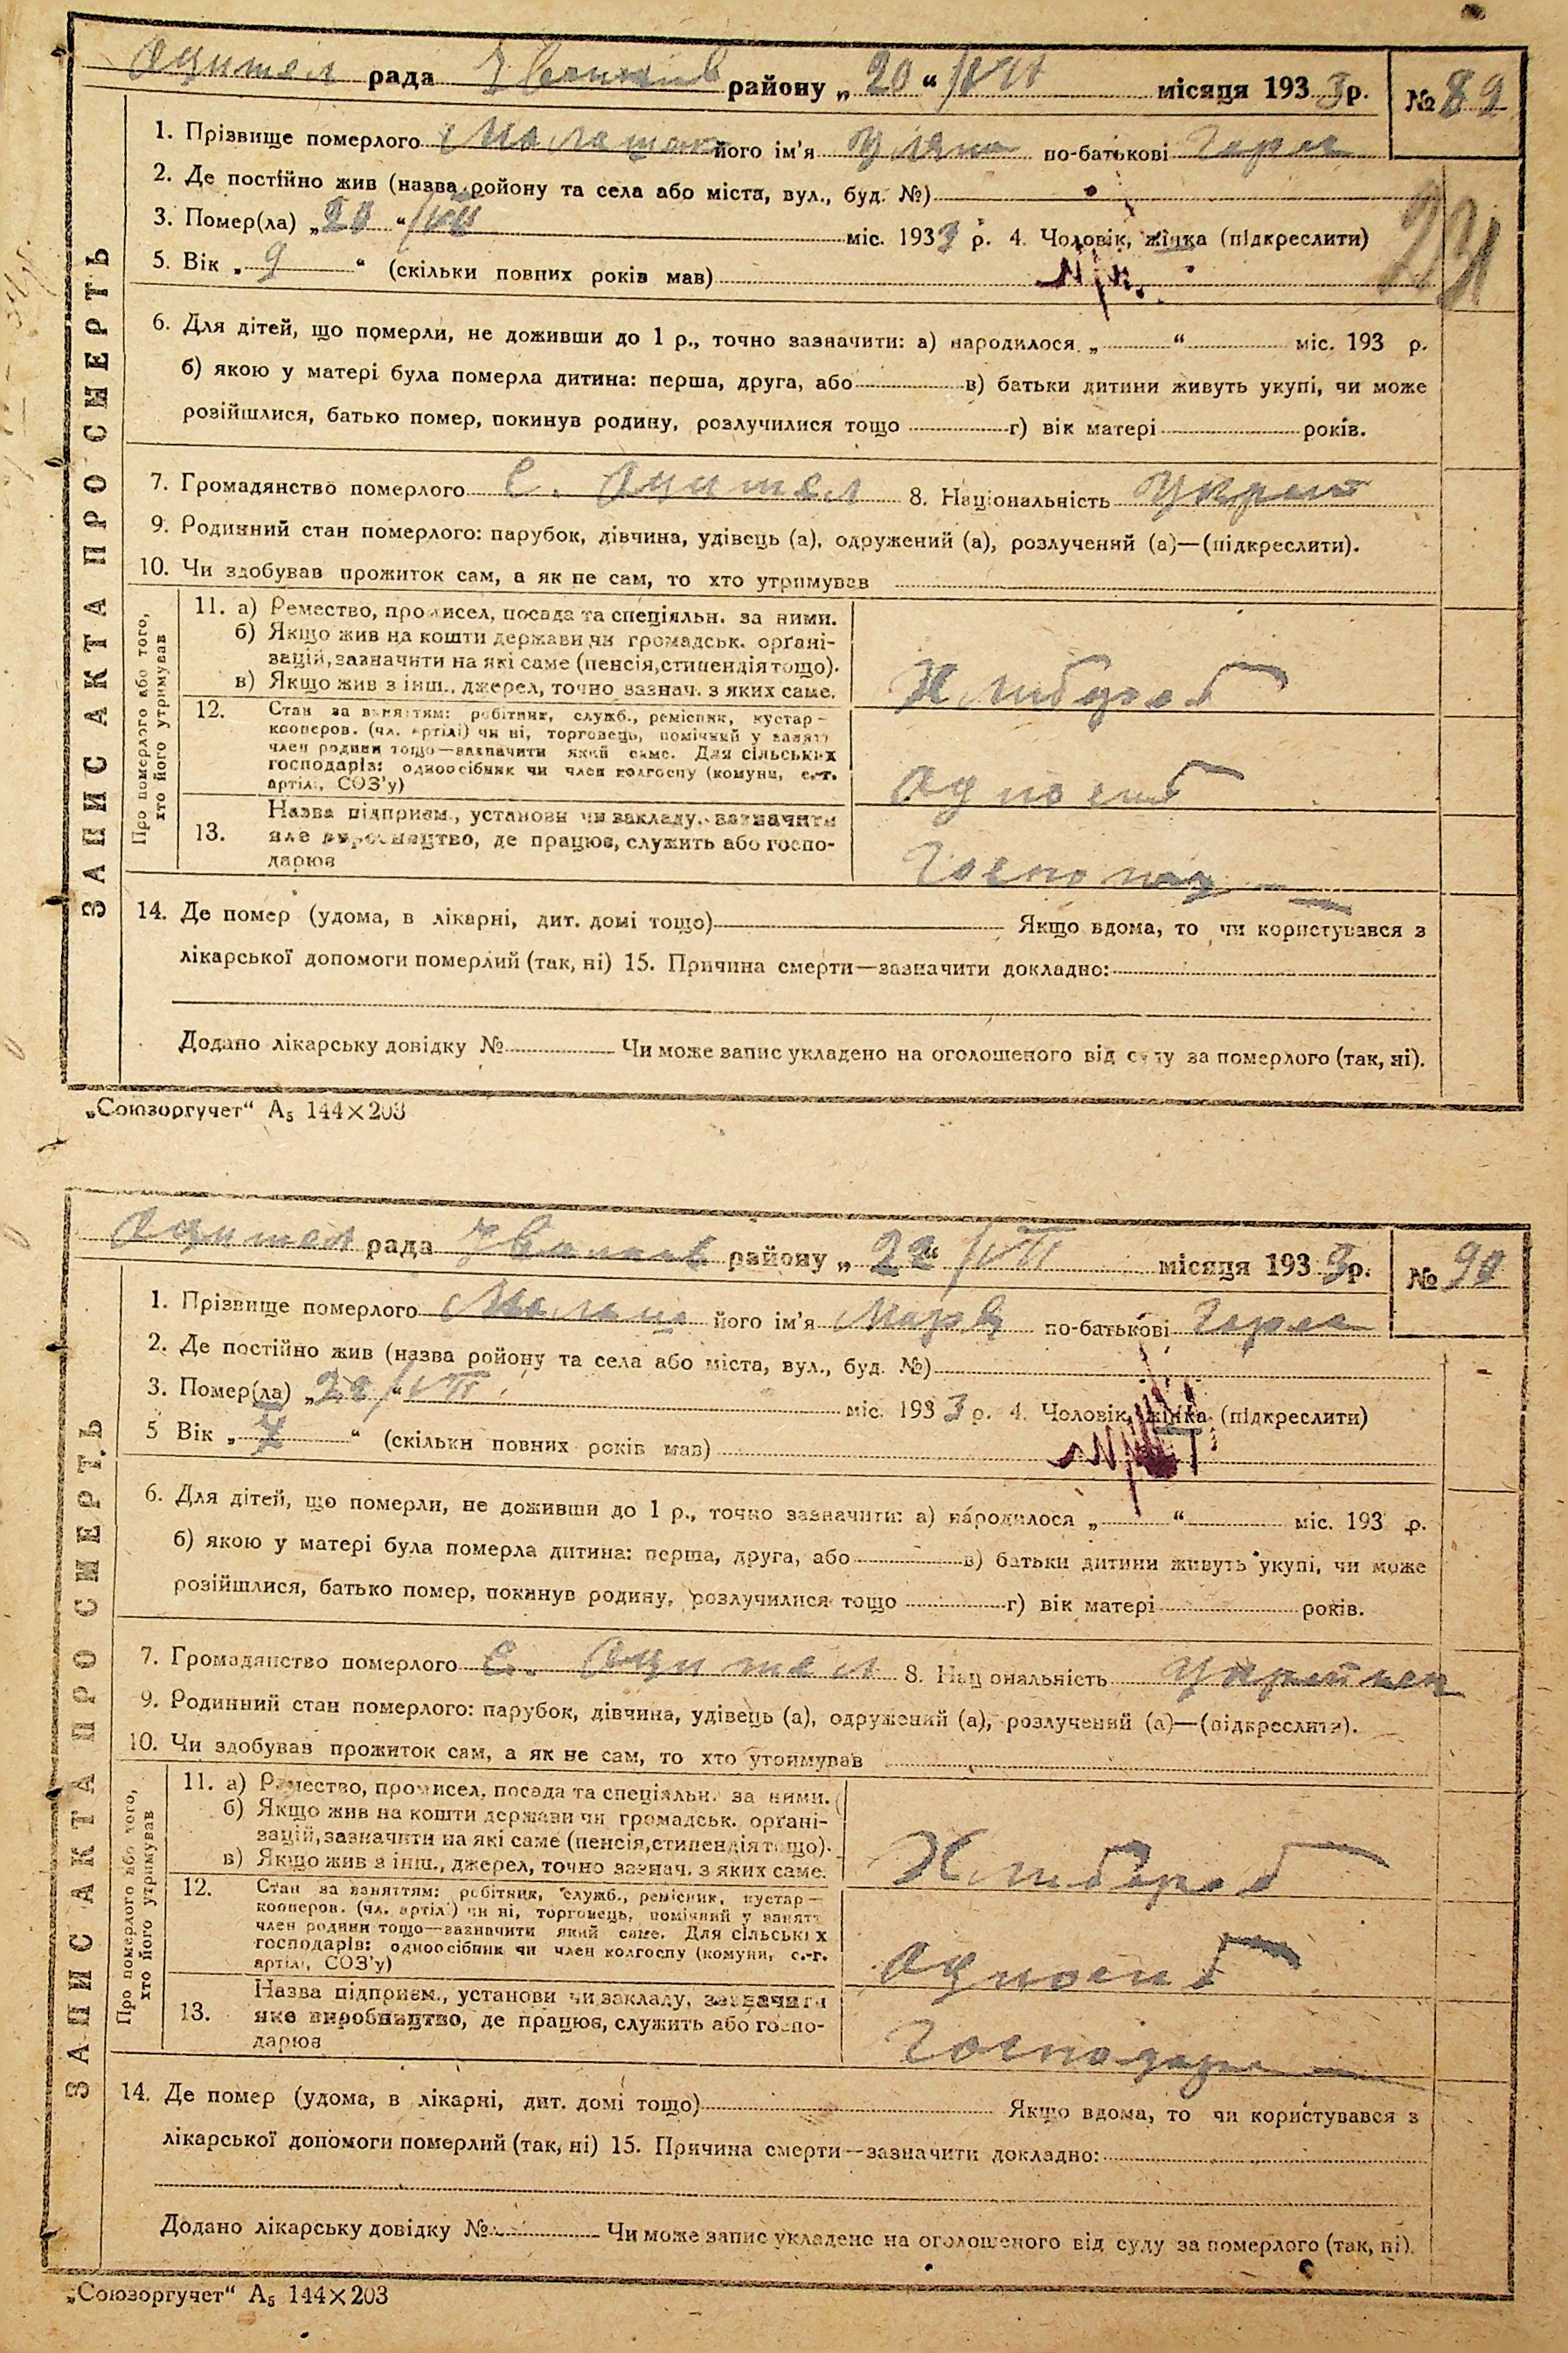 рада районy „ 20 “ /VII місяця 193 3 р. № 89
1. Прізвище померлого його ім'я Уляна по-батькові
2. Де постійно жив (назва ройону та села або міста, вул., буд. №)
3. Помер(ла) „ 20 “ /VII міс. 193 3 р. 4. Чоловік, жінка (підкреслити)
5. Вік „ 9 “ (скільки повних років мав)
6. Для дітей, що померли, не доживши до 1 р., точно зазначити: а) народилося „ “ міс. 193 р.
б) якою у матері була померла дитина: перша, друга, або в) батьки дитини живуть укупі, чи може
розійшлися, батько помер, покинув родину, розлучилися тощо г) вік матері років.
7. Громадянство померлого с. 8. Національність
9. Родинний стан померлого: парубок, дівчина, удівець (а), одружений (а), розлучений (а)—(підкреслити).
10. Чи здобував прожиток сам, а як не сам, то хто утримував
ЗАПИС АКТА ПРО СМЕРТЬ
Про померлого або того,
хто його утримував
11. а) Ремество, промисел, посада та спеціяльн. за ними.
б) Якщо жив на кошти держави чи громадськ. орґані-
зацій, зазначити на які саме (пенсія, стипендія тощо).
в) Якщо жив з інш., джерел, точно зазнач. з яких саме.
Хлибороб
12. Стан за заняттям: робітник, служб., ремісник, кустар—
кооперов. (чл. артілі) чи ні, торговець, помічний у занятт
член родини тощо—зазначити який саме. Для сільських
господарів: одноосібник чи член колгоспу (комуни, с.-г.
артілі, СОЗ'у)
Одноосиб
13. Назва підприєм., установи чи закладу, зазначити
яке виробництво, де працює, служить або госпо-
дарює
14. Де помер (удома, в лікарні, дит. домі тощо) Якщо вдома, то чи користувався з
лікарської допомоги померлий (так, ні) 15. Причина смерти—зазначити докладно:
Додано лікарську довідку № Чи може запис укладено на оголошеного від суду за померлого (так, ні).
„Союзоргучет“ А₅ 144×203
рада районy „ 22 “ /VII місяця 193 3 р. № 90
1. Прізвище померлого його ім'я по-батькові
2. Де постійно жив (назва ройону та села або міста, вул., буд. №)
3. Помер(ла) „ 22 “ /VII міс. 193 3 р. 4. Чоловік, жінка (підкреслити)
5 Вік „ 7 “ (скільки повних років мав)
6. Для дітей, що померли, не доживши до 1 р., точно зазначити: а) народилося „ “ міс. 193 р.
б) якою у матері була померла дитина: перша, друга, або в) батьки дитини живуть укупі, чи може
розійшлися, батько помер, покинув родину, розлучилися тощо г) вік матері років.
7. Громадянство померлого с. 8. Національність
9. Родинний стан померлого: парубок, дівчина, удівець (а), одружений (а), розлучений (а)—(підкреслити).
10. Чи здобував прожиток сам, а як не сам, то хто утримував
ЗАПИС АКТА ПРО СМЕРТЬ
Про померлого або того,
хто його утримував
11. а) Ремество, промисел, посада та спеціяльн. за ними.
б) Якщо жив на кошти держави чи громадськ. орґані-
зацій, зазначити на які саме (пенсія, стипендія тощо).
в) Якщо жив з інш., джерел, точно зазнач. з яких саме.
Хлибороб
12. Стан за заняттям: робітник, служб., ремісник, кустар—
кооперов. (чл. артілі) чи ні, торговець, помічний у занятт
член родини тощо—зазначити який саме. Для сільських
господарів: одноосібник чи член колгоспу (комуни, с.-г.
артілі, СОЗ'у)
Одноосиб
13. Назва підприєм., установи чи закладу, зазначити
яке виробництво, де працює, служить або госпо-
дарює
14. Де помер (удома, в лікарні, дит. домі тощо) Якщо вдома, то чи користувався з
лікарської допомоги померлий (так, ні) 15. Причина смерти—зазначити докладно:
Додано лікарську довідку № Чи може запис укладено на оголошеного від суду за померлого (так, ні).
„Союзоргучет“ А₅ 144×203